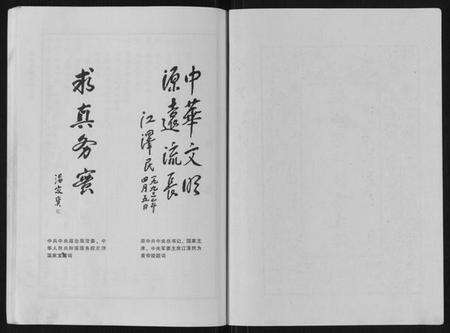 中华文明
源遠流長
江澤民
一九九二年
四月五日
原中共中央总书记、国家主
席、中央军委主席江泽民为
黄帝陵题词
求真务實
温家寶
中共中央政治局常委、中
华人民共和国国务院总理
温家宝题词